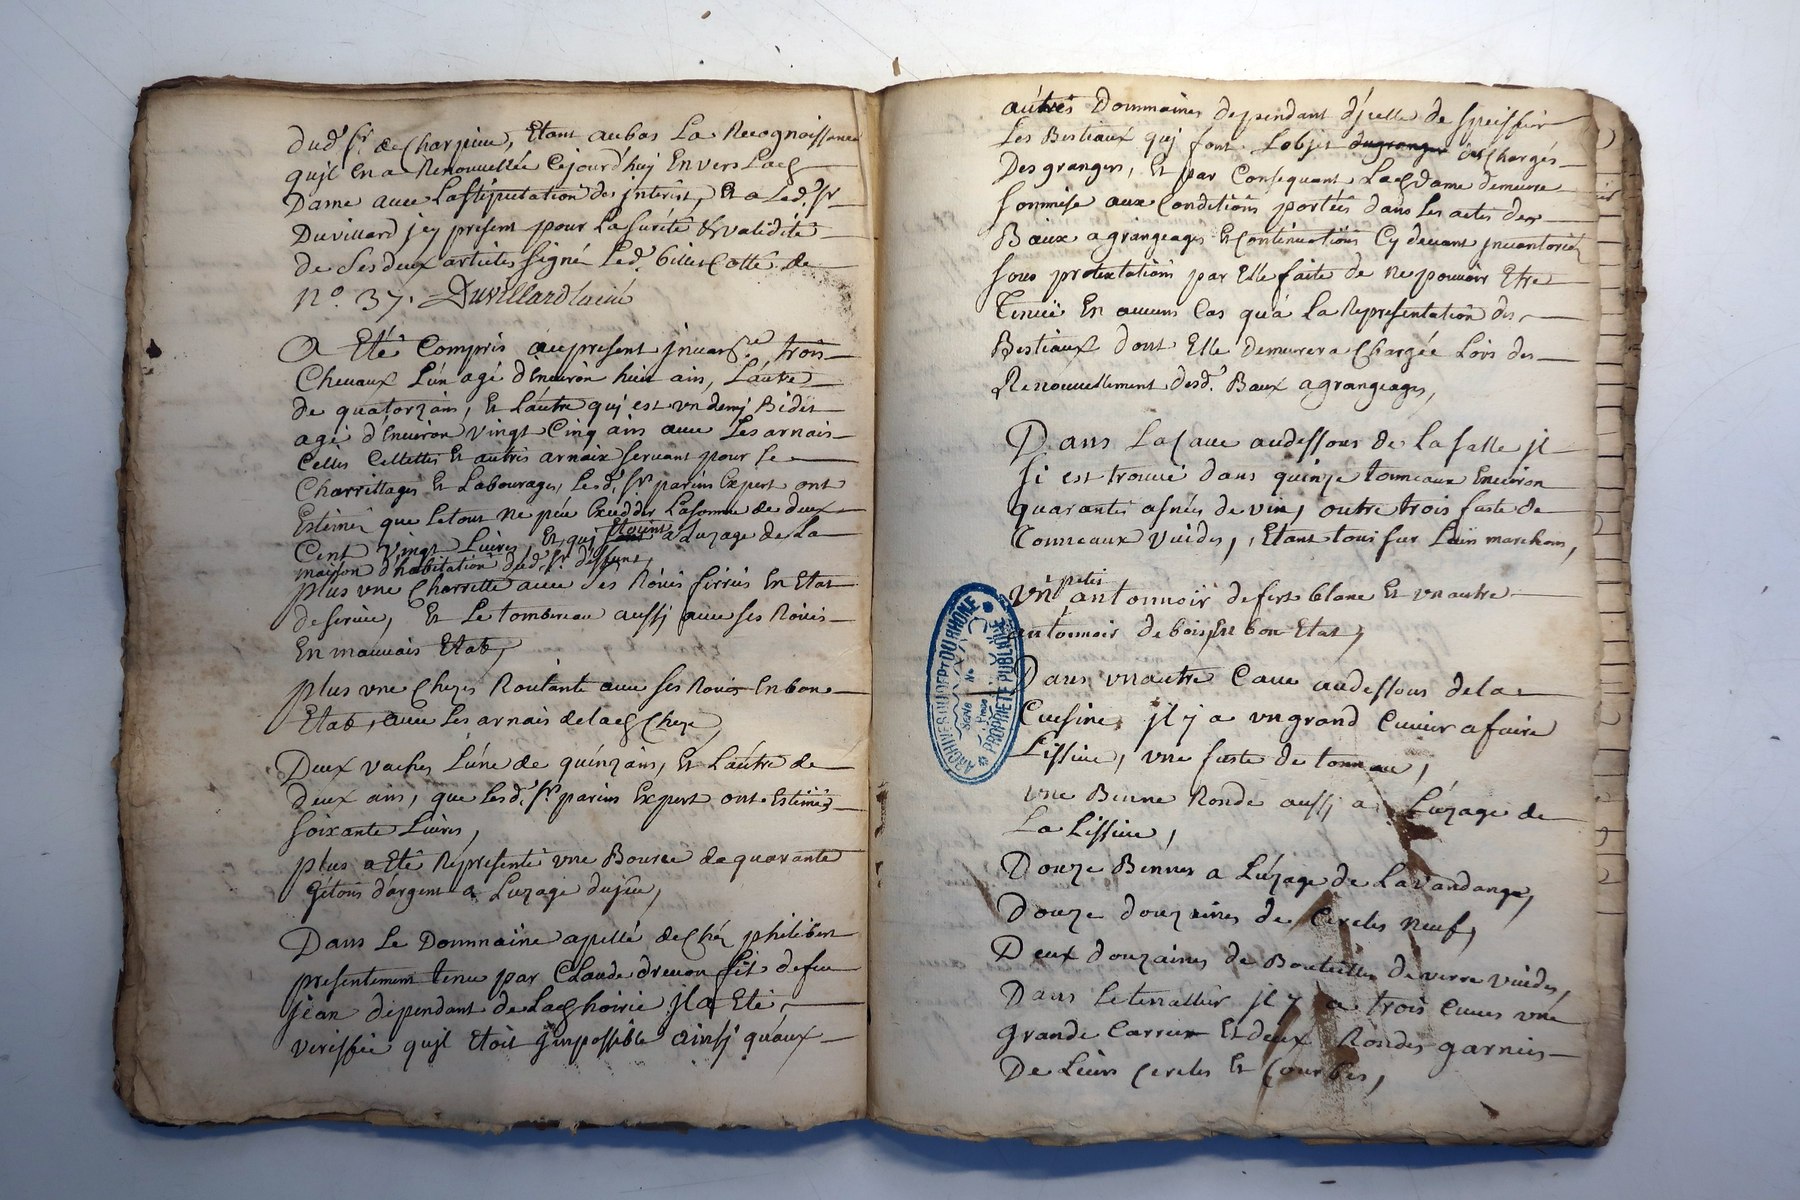 dud. Sr. de Charpieu, Etant aubas La Recognoissance
qujl en a Renouvellée cejourd'huy Envers Lad
Dame avec La stipulation des jnterist, Et a Led. Sr
Duvillard jcy present pour La sureté & validité
de Ses deux articles signé Led. billet Cotté de
No. 37. Duvillard lainé
A Eté Compris au present jnvanre. trois
Chevaux L'un agé d'Environ huit ans, L'autre
de quatorz ans, Et Lautre quj est un demj Bidet
agé d'Environ vingt Cinq ans avec Les arnais
Celles Cellettes Et autres arnaix servant pour Le
Charrettages Et Labourages, Lesd. Srs parius Expert ont
Estimé que Letout ne peu Excedder La somme de deux
Cent vingt Livres Et quj Etoint a Luzage de La
maison d'habitation dud. Sr. deffunt,
plus vne Charrette avec ses Roües ferrées En Etat
de servir, Et Le tombereau aussj avec ses Roües
En mauvais Etat,
plus vne Cheze Roulante avec ses Roües En bon
Etat, avec Les arnais de lad Cheze
Deux vaches L'une de quinz ans, Et L'autre de
deux ans, que Lesd. Srs parius Expert ont Estimés
soixante Livres,
plus a Eté Répresenté vne Bource de quarante
Gétons d'argent a Luzage du jeu,
Dans Le Dommaine apellé de Chéz philibert
presentement tenu par Claude drevon fils de feu
jean dépendant de Lad hoirie jl a Eté
veriffié qujl Etoit jmpossible ainsj qu'aux
autres Dommaines dependant d'jcelle de speciffier
Les Bestiaux quj font L'objet dugranger des Chargés
Des grangers, Et par Conséquent Lad Dame demeure
soumise aux Conditions portées dans Les actes des
Baux a grangeages Et Continuations Cy devant jnvantorié
sous protestations par Elle faite de ne pouvoir Etre
Tenüe En aucuns Cas qu'a La Representation des
Bestiaux dont Elle demeurera Chargée Lors des
Renouvellement desd. Baux a grangeages,
Dans La Cave audessous de La salle jl
si est trouvé dans quinze tonneaux Environ
quarante asnées de vin, outre trois futte de
Tonneaux vuides, Etant tous sur Leurs marchons,
Vn petit antonnoir de fert blanc Et vn autre
antonnoir de bois, En bon Etat,
Dans vn autre Cave audessous de la
Cuisine jl y a vn grand Cuvier a faire
Lissive, vne futte de tonneau,
vne Benne Ronde aussj a L'uzage de
La Lissive,
Douze Bennes a L'uzage de La vandange,
Douze douzaines de Cercles neuf,
Deux douzaines de Bouteilles de verre vuides,
Dans Le tenallier jl y a trois Cuves vne
Grande Carrée Et deux Rondes garnies
De Leurs Cercles Et Courbes,
ARCHIVES DU DÉPT DU RHÔNE
PROPRIÉTÉ PUBLIQUE